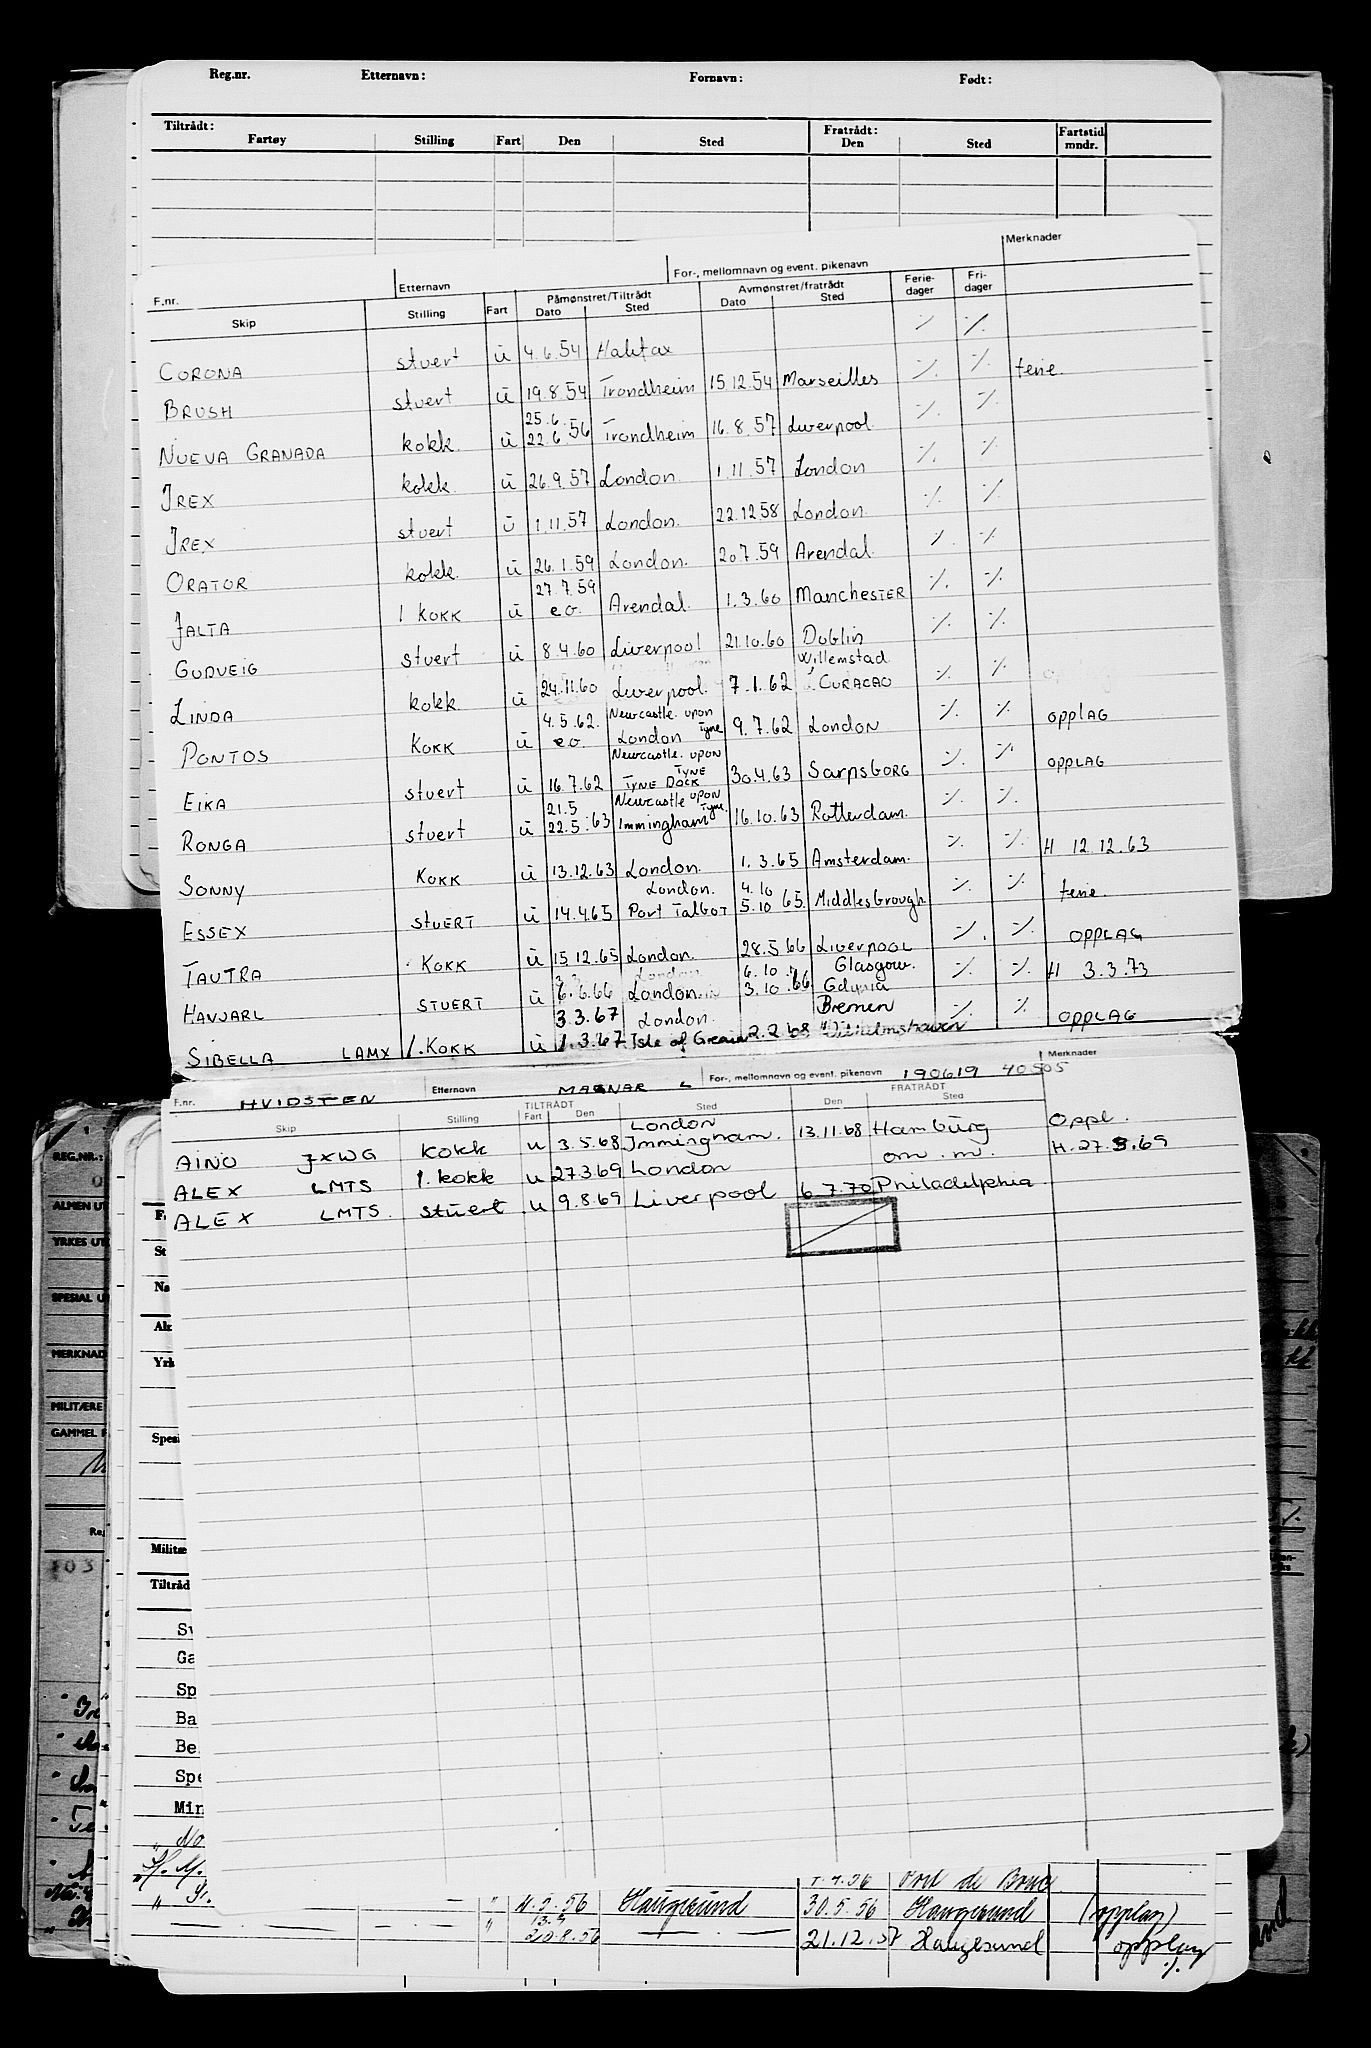 Reg.nr. Etternavn: Fornavn: Født:
Tiltrådt: Fratrådt: Fartstid
Fartøy Stilling Fart Den Sted Den Sted mndr.
Merknader
F.nr. Etternavn For-, mellomnavn og event. pikenavn
Påmønstret/Tiltrådt Avmønstret/fratrådt Ferie- Fri-
Skip Stilling Fart Dato Sted Dato Sted dager dager
CORONA stuert ü 4.6.54 Halifax ./. ./.
BRUSH stuert ü 19.8.54 Trondheim 15.12.54 Marseilles ./. ./. ferie.
25.6.
NUEVA GRANADA kokk. ü 22.6.56 Trondheim 16.8.57 Liverpool. ./. ./.
IREX kokk ü 26.9.57 London. 1.11.57 London ./. ./.
IREX stuert ü 1.11.57 London. 22.12.58 London. ./. ./.
ORATOR kokk. ü 26.1.59 London. 20.7.59 Arendal. ./. ./.
27.7.59
JALTA 1 KOKK ü e.o. Arendal. 1.3.60 MANCHESTER ./. ./.
GUDVEIG stuert ü 8.4.60 Liverpool 21.10.60 Dublin ./. ./.
Willemstad
LINDA kokk. ü 24.11.60 Liverpool. 7.1.62 CURACAO ./. ./.
4.5.62. Newcastle. upon Tyne
PONTOS KOKK ü e.o. London 9.7.62 LONDON ./. ./. OPPLAG
Newcastle. UPON TYNE
EIKA stuert ü 16.7.62 TYNE DOCK 30.4.63 SARPSBORG ./. ./. OPPLAG
21.5 Newcastle UPON Tyne.
RONGA stuert ü 22.5.63 Immingham 16.10.63 Rotterdam. ./. ./.
SONNY KOKK ü 13.12.63 London. 1.3.65 Amsterdam. ./. ./. H 12.12.63
London. 4.10
ESSEX STUERT ü 14.4.65 Port Talbot 5.10 65. Middlesbrough ./. ./. ferie
TAUTRA KOKK ü 15.12.65 London. 28.5.66 LIVERPOOL ./. ./. OPPLAG
6.10 Glasgow.
HAVJARL STUERT ü 6.6.66 London. 3.10.66 Gdynia ./. ./. H 3.3.73
3.3.67 London. Bremen
SIBELLA LAMX 1. KOKK ü 1.3.67 Isle of Grain 2.2.68 Wilhelmshaven ./. ./. OPPLAG
Merknader
F.nr. HVIDSTEN Etternavn MAGNAR L For-, mellomnavn og event. pikenavn 190619 40505
TILTRÅDT FRATRÅDT
Skip Stilling Fart Den Sted Den Sted
London
AINO JXWG Kokk u 3.5.68 Immingham. 13.11.68 Hamburg Oppl.
ALEX LMTS 1. kokk u 27.3.69 London om. m. H.27.3.69
ALEX LMTS. stuert u 9.8.69 Liverpool 6.7.70 Philadelphia
REG.NR.:
ALMEN UT
YRKES UT
SPECIAL U
MERKNAD
MILITÆRE
GAMMEL
St
Na
Alm
Yrk
Spesi
Militæ
Tiltråd
Sv
Ga
Sp
Ba
Be
Spe
Min
No
Port de Bouc
" 11.5.56 Haugesund 30.5.56 Haugesund (opplag)
" 20.8.56 21.12.57 Haugesund opplag
./.